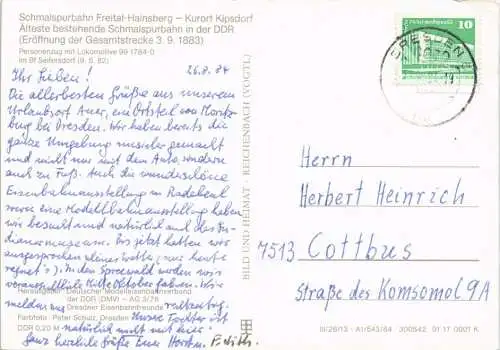 Schmalspurbahn Freital-Hainsberg – Kurort Kipsdorf
Älteste bestehende Schmalspurbahn in der DDR
(Eröffnung der Gesamtstrecke 3. 9. 1883)
Personenzug mit Lokomotive 99 1784-0
im Bf Seifersdorf (9. 5. 82)
26.8.84
Ihr Lieben!
Die allerbesten Grüße aus unserem
Urlaubsort Auer, ein Ortsteil von Moritz-
burg bei Dresden. Wir haben bereits die
ganze Umgebung unsicher gemacht
und nicht nur mit dem Auto, sondern
auch zu Fuß. Auch die wunderschöne
Eisenbahnausstellung in Radebeul
sowie eine Modellbahnausstellung haben
wir besucht und natürlich auch das In-
dianermuseum. Bis jetzt hatten wir
ausgesprochen schönes Wetter (nur heute
regnet's). In den Spreewald werden wir
voraussichtlich Mitte Oktober fahren. Wir
melden uns rechtzeitig.
Herausgeber: Deutscher Modelleisenbahnverband
der DDR (DMV) – AG 3/76
Dresdner Eisenbahnfreunde
Farbfoto: Peter Schulz, Dresden
Unsere Tochter ist
DDR 0,20 M
natürlich nicht mit hier!
Ganz herzliche Grüße Eure Horsten.
BILD UND HEIMAT · REICHENBACH (VOGTL)
DRESDEN
10
Herrn
Herbert Heinrich
7513 Cottbus
Straße des Komsomol 9A
III/26/13 · A1/643/84 300542 01 17 0001 K